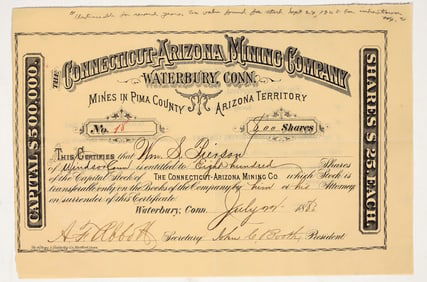 for several years, no value found for stock Sept 24, 1925
THE CONNECTICUT-ARIZONA MINING COMPANY
WATERBURY, CONN.
MINES IN PIMA COUNTY ARIZONA TERRITORY
CAPITAL $500,000.
SHARES $25. EACH.
No. 18 800 Shares
THIS CERTIFIES that Wm. S. Pierson
of Windsor Conn is entitled to Eight hundred Shares
of the Capital Stock of THE CONNECTICUT-ARIZONA MINING CO. which Stock is
transferable only on the Books of the Company by him or his Attorney
on surrender of this Certificate.
Waterbury, Conn. July 188
A F Abbott Secretary John C. Booth, President